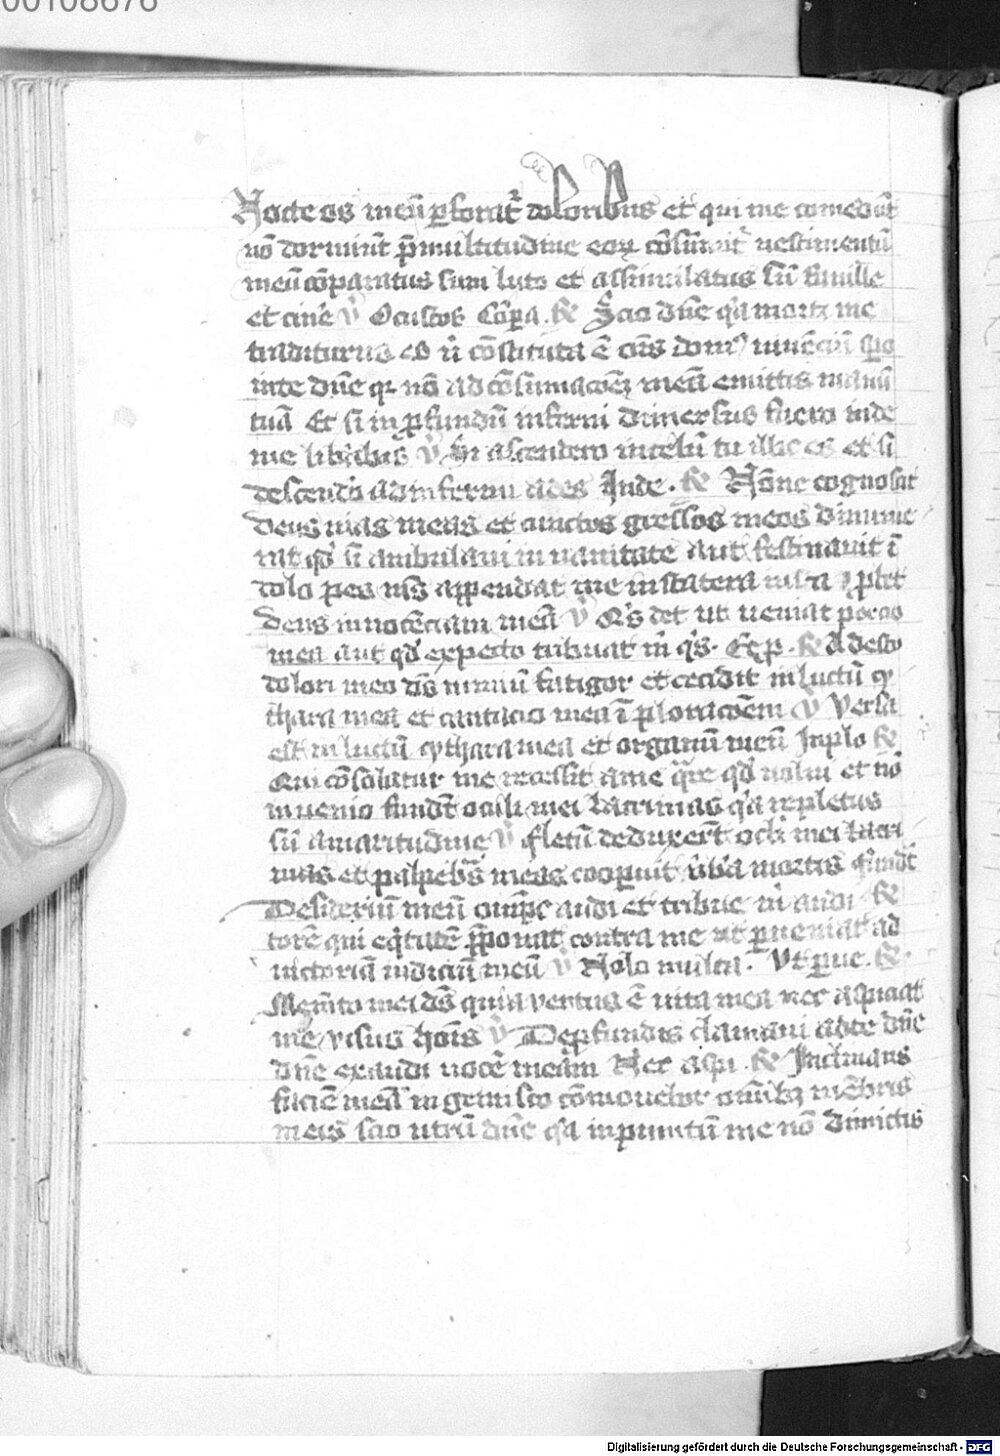 00108676
Nocte os meū ꝑforat᷑ doloribus et qui me comedūt
nō dormiūt p̄ multitudine eoꝝ cōsumit᷑ vestimentū
meū cōparatus sum luto et assimilatus sū fauille
et cineri V̓ Scio dn̄e qꝛ morti me
traditurus es vbi cōstituta ē
in te dn̄e qꝛ nō ad cōsumacōeꝫ meā emittis manū
tuā Et si in ꝓfundū inferni dimersus fuero inde
me libabis V̓ Si ascendero in celū tu illic es et si
descendo ad infernū ades Inde. Nōne cognoscit
deus vias meas et cunctos gressos meos dinume
rat qd̓ si ambulaui in vanitate aut festinauit ī
dolo pes m̄s appendat me in statera iusta
deus innocēciam meā V̓ Qͥs det ut veniat
mea aut qd̓ expecto tribuat m̄ Adesto
dolori meo ds̄ nimiū fatigor et cecidit in luctū cy
thara mea et cantacio mea ī ploracōem V̓ Versa
est in luctū cythara mea et organū meū In plo
Qui cōsolabatur me recessit a me quero qd̓ volui et nō
inuenio fundūt oculi mei lacrimas qꝛ repletus
sū amaritudine V̓ fletū deduxerūt oculi mei lacri
mas et palpebr̄ meas cooperuit vmbra mortis fundūt
Desideriū meū om̄pс audi et tribue m̄ audi
torē qui eq̓tatē ꝓponat contra me ut ꝑueniat ad
victoriā iudiciū meū V̓ Nolo multa. Vt ꝑue.
Mem̄to mei ds̄ quia ventus ē vita mea nec aspiciat
me visus hōis V̓ De ꝓfundis clamaui ad te dn̄e
dn̄e exaudi vocē meam Nec aspi. Inclinans
faciē meā ingemisco cōmouebor om̄ibꝫ mēbris
meis scio dn̄e qꝛ inpunitū me nō dimittis
Digitalisierung gefördert durch die Deutsche Forschungsgemeinschaft - DFG